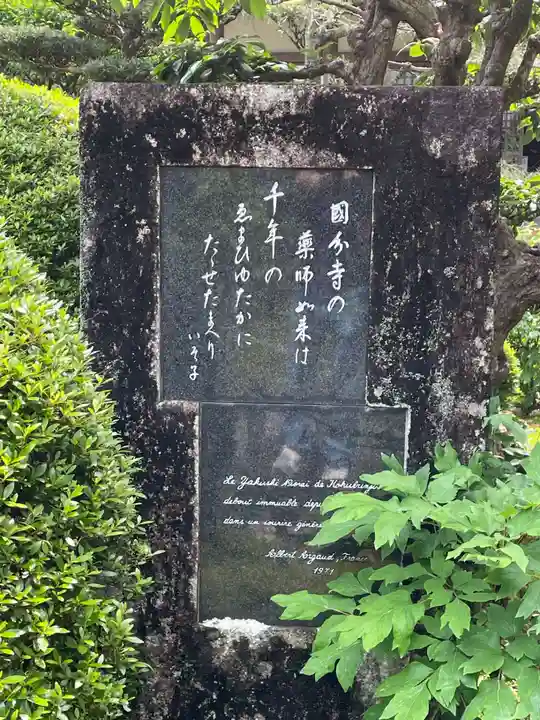 國分寺の
薬師如来は
千年の
ゑまひゆたかに
たゝせたまへり
いそ子
Le Yakushi Nyorai de Kokubunji
debout immuable depu
dans un sourire géné
Albert Aigaud, France
1971